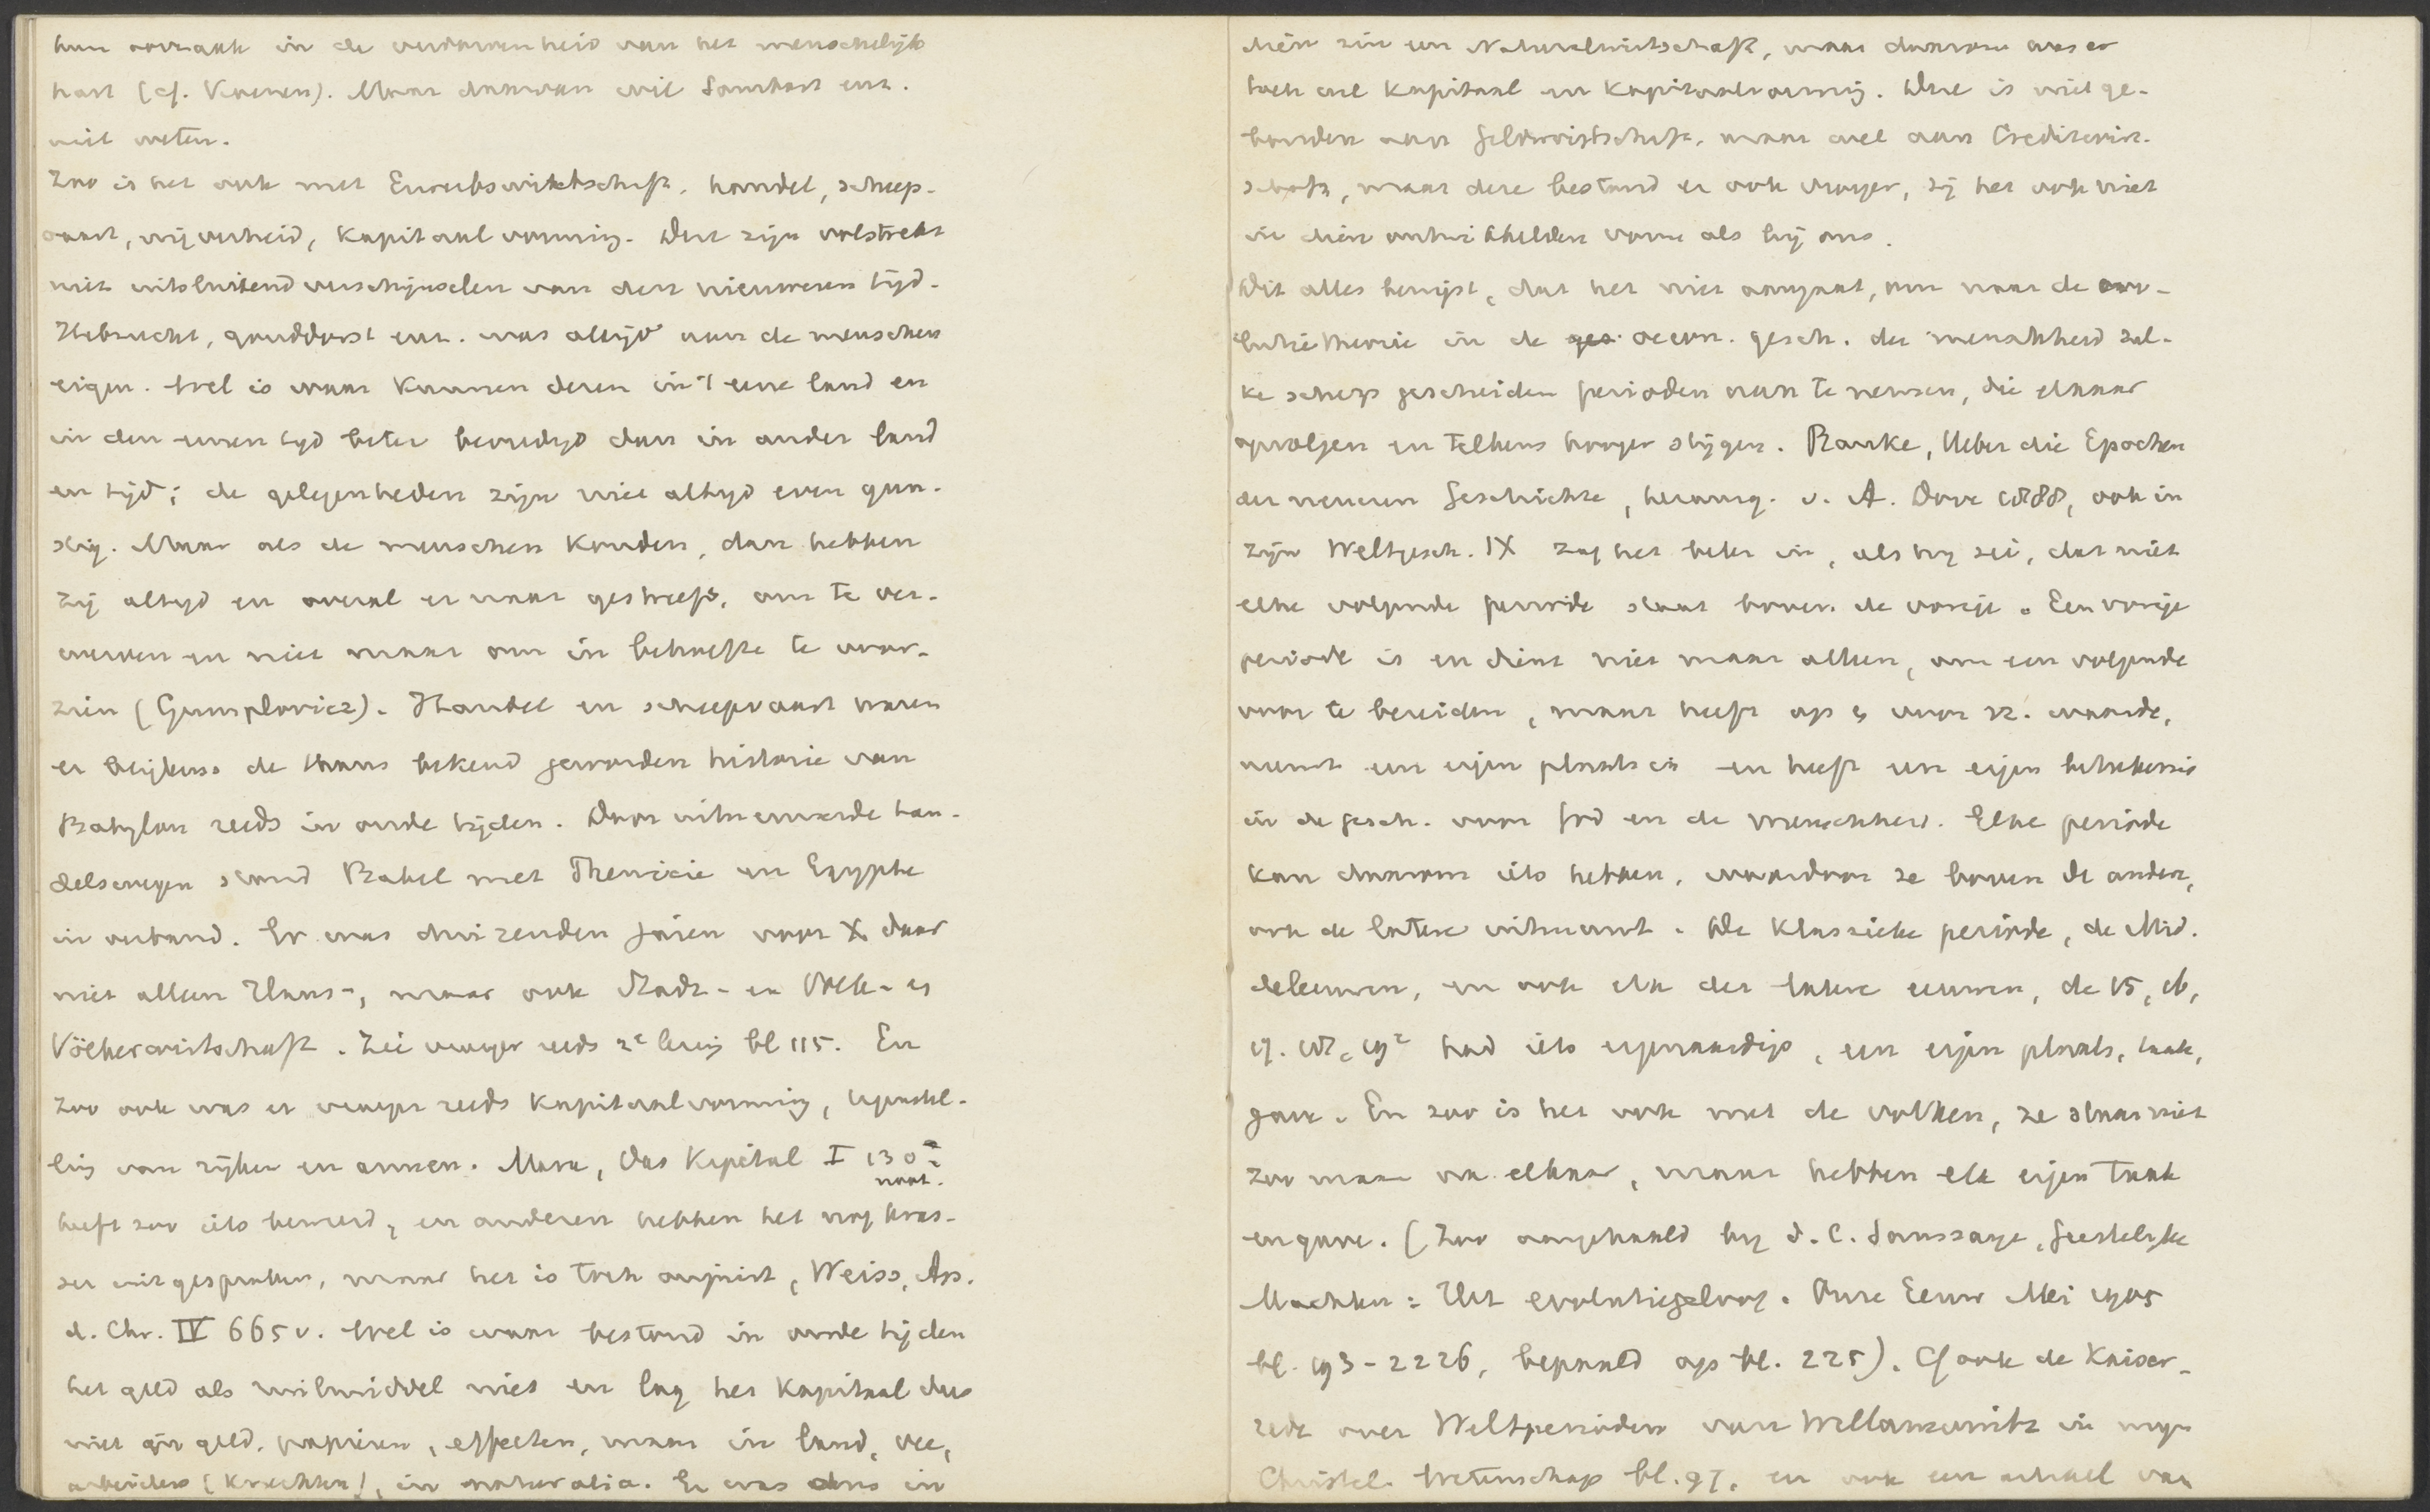 hun oorzaak in de verdorvenheid van het menschelijk
hart (cf. Kuenen). Maar daarvan wil Sombart enz.
niet weten.
Zoo is het ook met Erwerbswirtschaft, handel, scheep-
vaart, nijverheid, kapitaalvorming. Dat zijn volstrekt
niet uitsluitend verschijnselen van den nieuweren tijd.
Hebzucht, gouddorst enz. was altijd aan de menschen
eigen. Wel is waar kunnen dezen in 't eene land en
in den eenen tijd beter bevredigd dan in ander land
en tijd; de gelegenheden zijn niet altijd even gun-
stig. Maar als de menschen konden, dan hebben
zij altijd en overal er naar gestreefd, om te ver-
werven en niet maar om in behoefte te voor-
zien (Gumplovicz). Handel en scheepvaart waren
er blijkens de thans bekend geworden historie van
Babylon reeds in oude tijden. Door uitnemende han-
delswegen stond Babel met Phenicie en Egypte
in verband. Er was duizenden jaren voor X daar
niet alleen Haus-, maar ook Stadt- en Volk- en
Völkerwirtschaft. Zie vroeger reeds 2e lezing bl 115. En
zoo ook was er vroeger reeds kapitaalvorming, tegenstel-
ling van rijken en armen. Marx, Das Kapital I 130
noot.
heeft zoo iets beweerd, en anderen hebben het nog kras-
ser uitgesproken, maar het is toch onjuist, Weiss, Ap.
d. Chr. IV 665 v. Wel is waar bestond in oude tijden
het geld als ruilmiddel niet en lag het kapitaal dus
niet in geld, papieren, effecten, maar in land, vee,
arbeiders (knechten), in naturalia. Er was dus in
dien zin een Naturalwirtschaft, maar daarom was er
toch wel kapitaal en kapitaalvorming. Deze is niet ge-
bonden aan Geldwirtschaft, maar wel aan Creditwirt-
schaft, maar deze bestond er ook vroeger, zij het ook niet
in dien ontwikkelden vorm als bij ons.
Dit alles bewijst, dat het niet aangaat, om naar de evo-
lutietheorie in de oecon. gesch. der menschheid zul-
ke scherp gescheiden perioden aan te nemen, die elkaar
opvolgen en telkens hooger stijgen. Ranke, Ueber die Epochen
der neueren Geschichte, herausg. v. A. Dove 1888, ook in
zijn Weltgesch. IX zag het beter in, als hij zei, dat niet
elke volgende periode staat boven de vorige. Een vorige
periode is en dient niet maar alleen, om een volgende
voor te bereiden, maar heeft op en voor zz. waarde,
neemt een eigen plaats in en heeft een eigen beteekenis
in de gesch. voor God en de menschheid. Elke periode
kan daarom iets hebben, waardoor ze boven de andere,
ook de latere uitmunt. De klassieke periode, de Mid-
deleeuwen, en ook elk der latere eeuwen, de 15, 16,
17. 18, 19e had iets eigenaardigs, een eigen plaats, taak,
gave. En zoo is het ook met de volken, ze staan niet
zoo maar na elkaar, maar hebben elk eigen taak
en gave. (Zoo aangehaald bij d. C. Saussaye, Geestelijke
Machten: Het evolutiegeloof. Onze Eeuw Mei 1905
bl. 193-2226, bepaald op bl. 225). Cf ook de Kaiser-
rede over Weltperioden van Willamowitz in mijn
Christel. Wetenschap bl. 97, en ook een artikel van